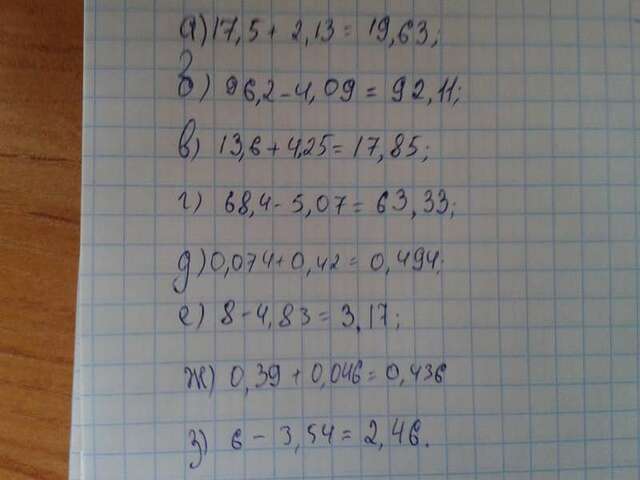 а) 17,5 + 2,13 = 19,63;
б) 96,2 - 4,09 = 92,11;
в) 13,6 + 4,25 = 17,85;
г) 68,4 - 5,07 = 63,33;
д) 0,074 + 0,42 = 0,494;
е) 8 - 4,83 = 3,17;
ж) 0,39 + 0,046 = 0,436
з) 6 - 3,54 = 2,46.